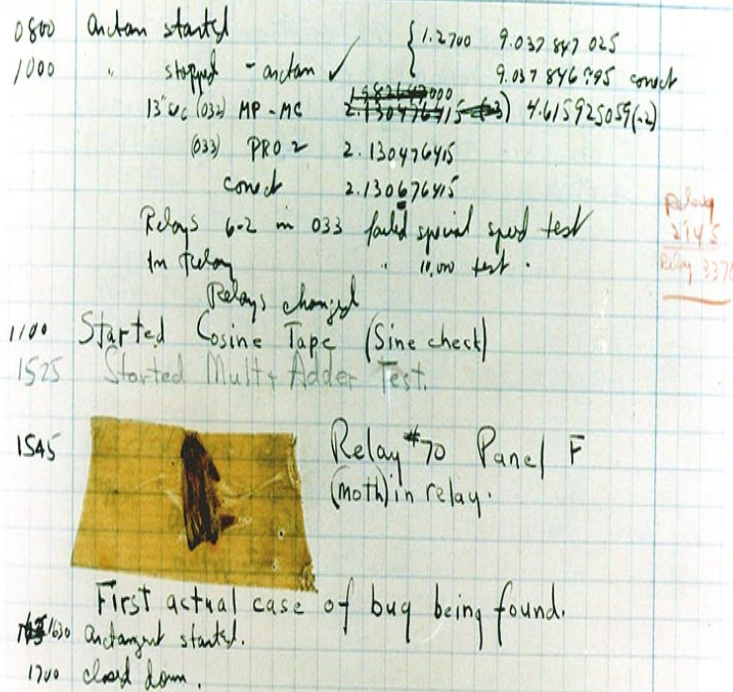 0800 arctan started {1.2700 9.037 847 025
1000 " stopped - arctan ✓ 9.037 846 995 correct
13"uc (032) MP-MC 2.130476415 (-3) 4.615925059(-2)
(033) PRO 2 2.130476415
correct 2.130676415
Relays 6-2 in 033 failed special speed test
In Relay " 10,000 test.
Relays changed
Relay
2145
Relay 3370
1100 Started Cosine Tape (Sine check)
1525 Started Mult+Adder Test.
1545 Relay #70 Panel F
(moth) in relay.
First actual case of bug being found.
1630 arctangent started.
1700 closed down.